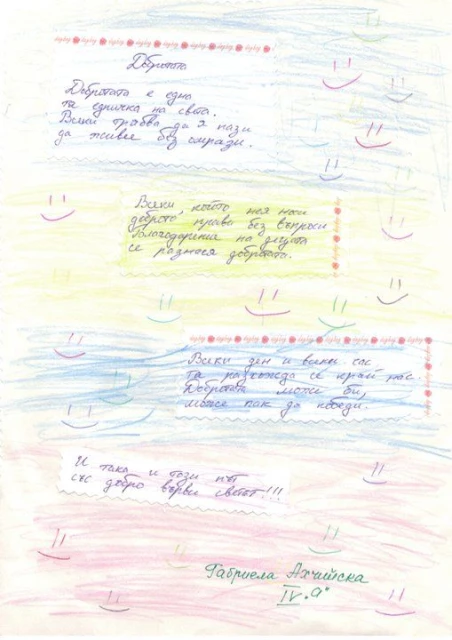 Добротата
Добротата е една
тя единичка на света.
Всеки трябва да я пази
да живее без омрази.
Всеки, който нея носи
доброто прави без въпроси
благодарение на децата
се разнася добротата.
Всеки ден и всеки час
тя разхожда се край нас.
Добротата може би,
може пак да победи.
И така и този път
със добро върви светът!!!
Габриела Ахчийска
IV "а"